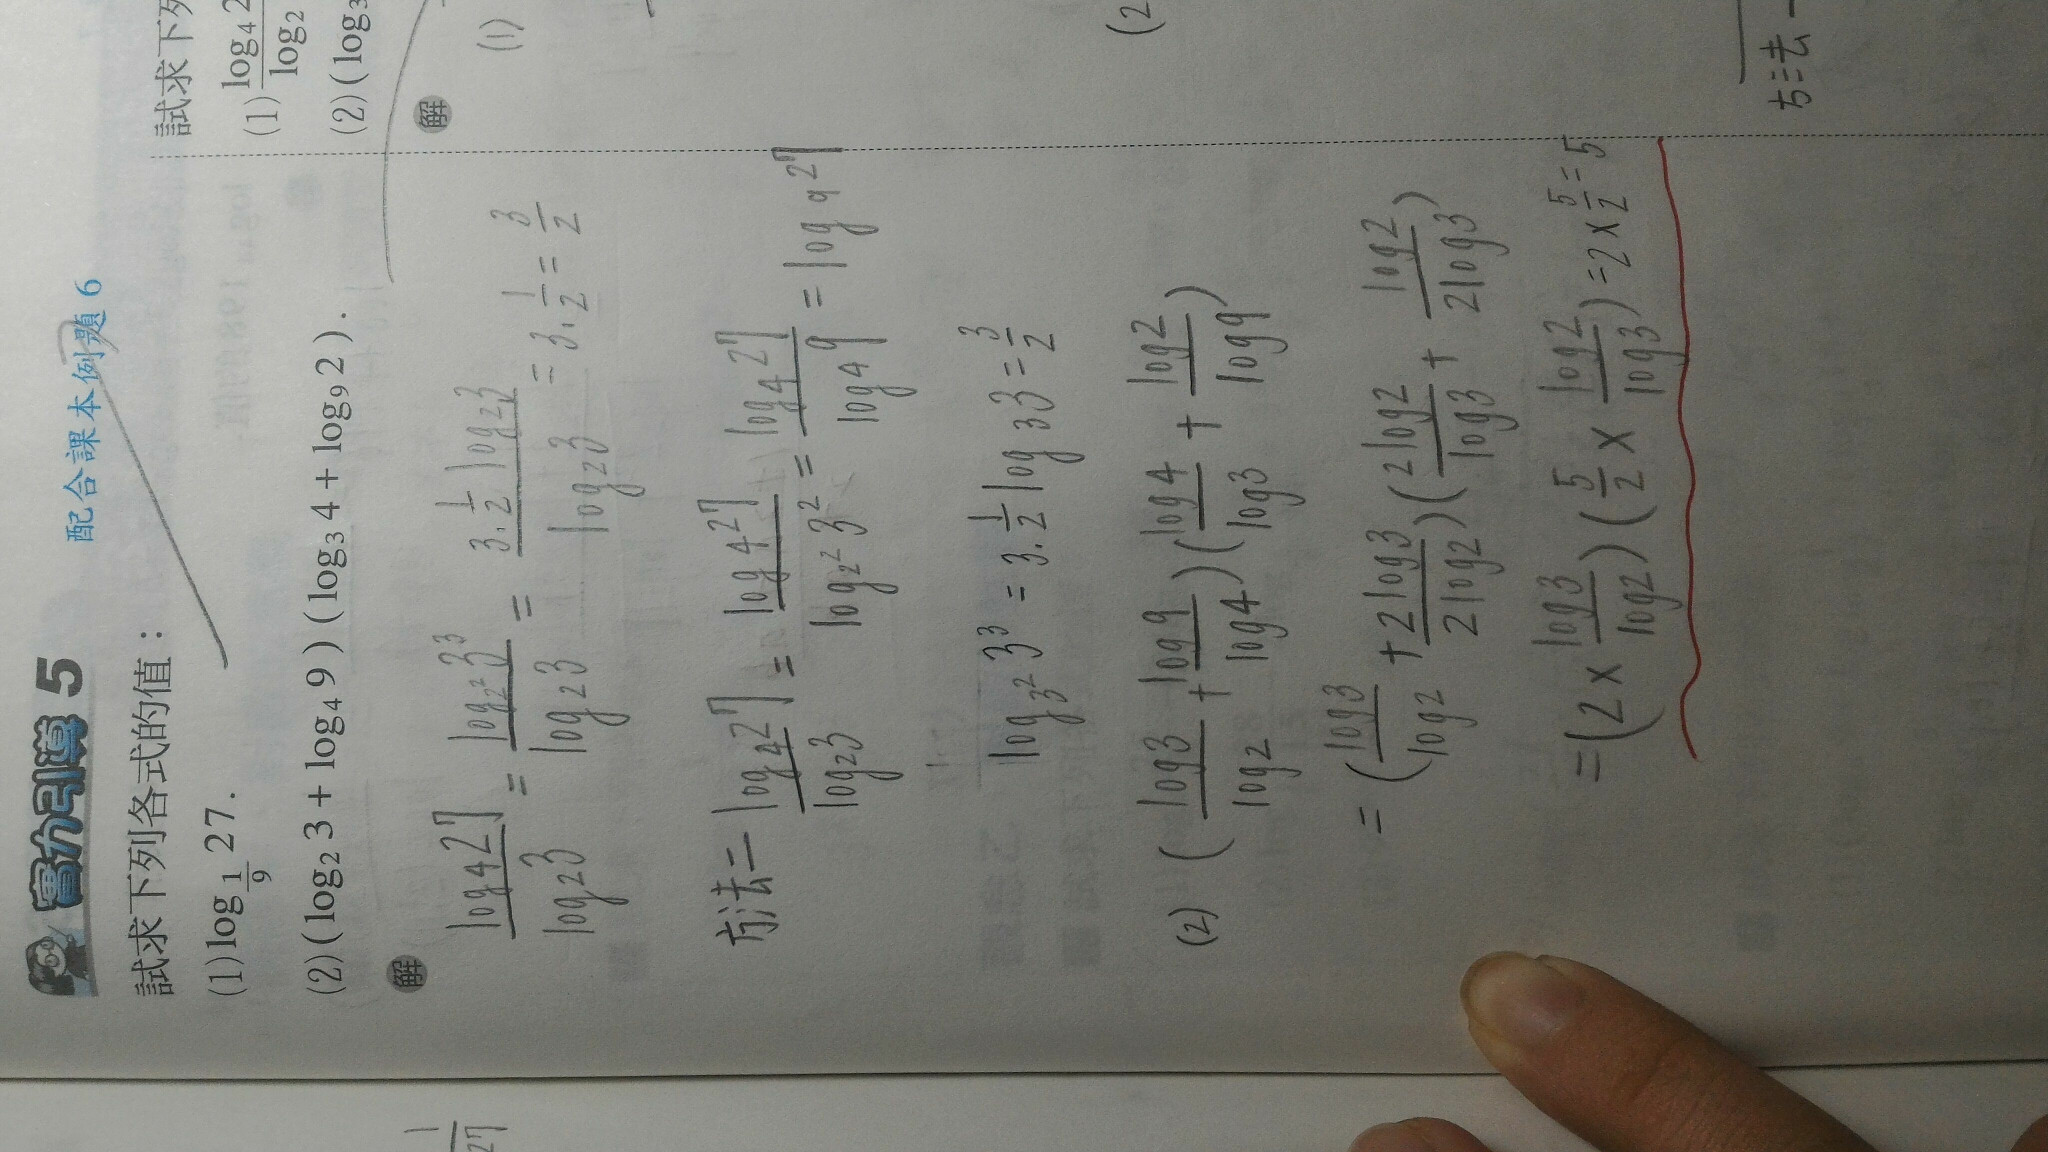 實力引導 5 配合課本例題 6
試求下列各式的值：
(1) log_{1/9} 27 .
(2) ( log₂ 3 + log₄ 9 ) ( log₃ 4 + log₉ 2 ) .
解
log₄27 / log₂3 = log_{2²}3³ / log₂3 = 3·1/2 log₂3 / log₂3 = 3·1/2 = 3/2
方法二 log₄27 / log₂3 = log₄27 / log_{2²}3² = log₄27 / log₄9 = log₉27
log_{3²}3³ = 3·1/2 log₃3 = 3/2
(2) ( log3/log2 + log9/log4 ) ( log4/log3 + log2/log9 )
= ( log3/log2 + 2log3/2log2 ) ( 2log2/log3 + log2/2log3 )
= ( 2 × log3/log2 ) ( 5/2 × log2/log3 ) = 2 × 5/2 = 5
試求下列
(1) log₄ 2
log₂
(2) ( log₃
解
(1)
(2
方法一
1/27